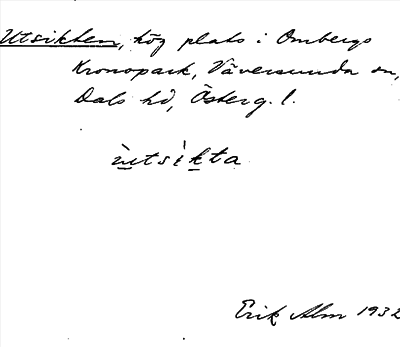 Utsikten, hög plats i Ombergs
Kronopark, Väversunda sn,
Dals hd, Österg. l.
ùtsìkta
Erik Alm 1932